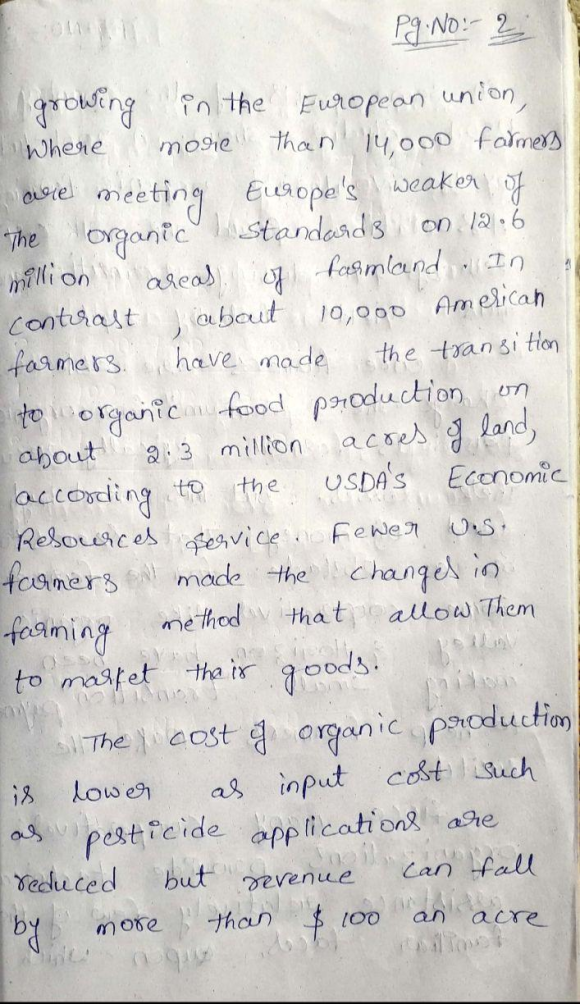 Pg.No:- 2
growing in the European union,
where more than 14,000 farmers
are meeting Europe's weaker of
The organic Standards on 12.6
million areas of farmland. In
contrast, about 10,000 American
farmers have made the transition
to organic food production on
about 2.3 million acres of land,
according to the USDA'S Economic
Resources service. Fewer U.S.
farmers made the changes in
farming method that allow Them
to market their goods.
The cost of organic production
is lower as input cost such
as pesticide applications are
reduced but revenue can fall
by more than $ 100 an acre